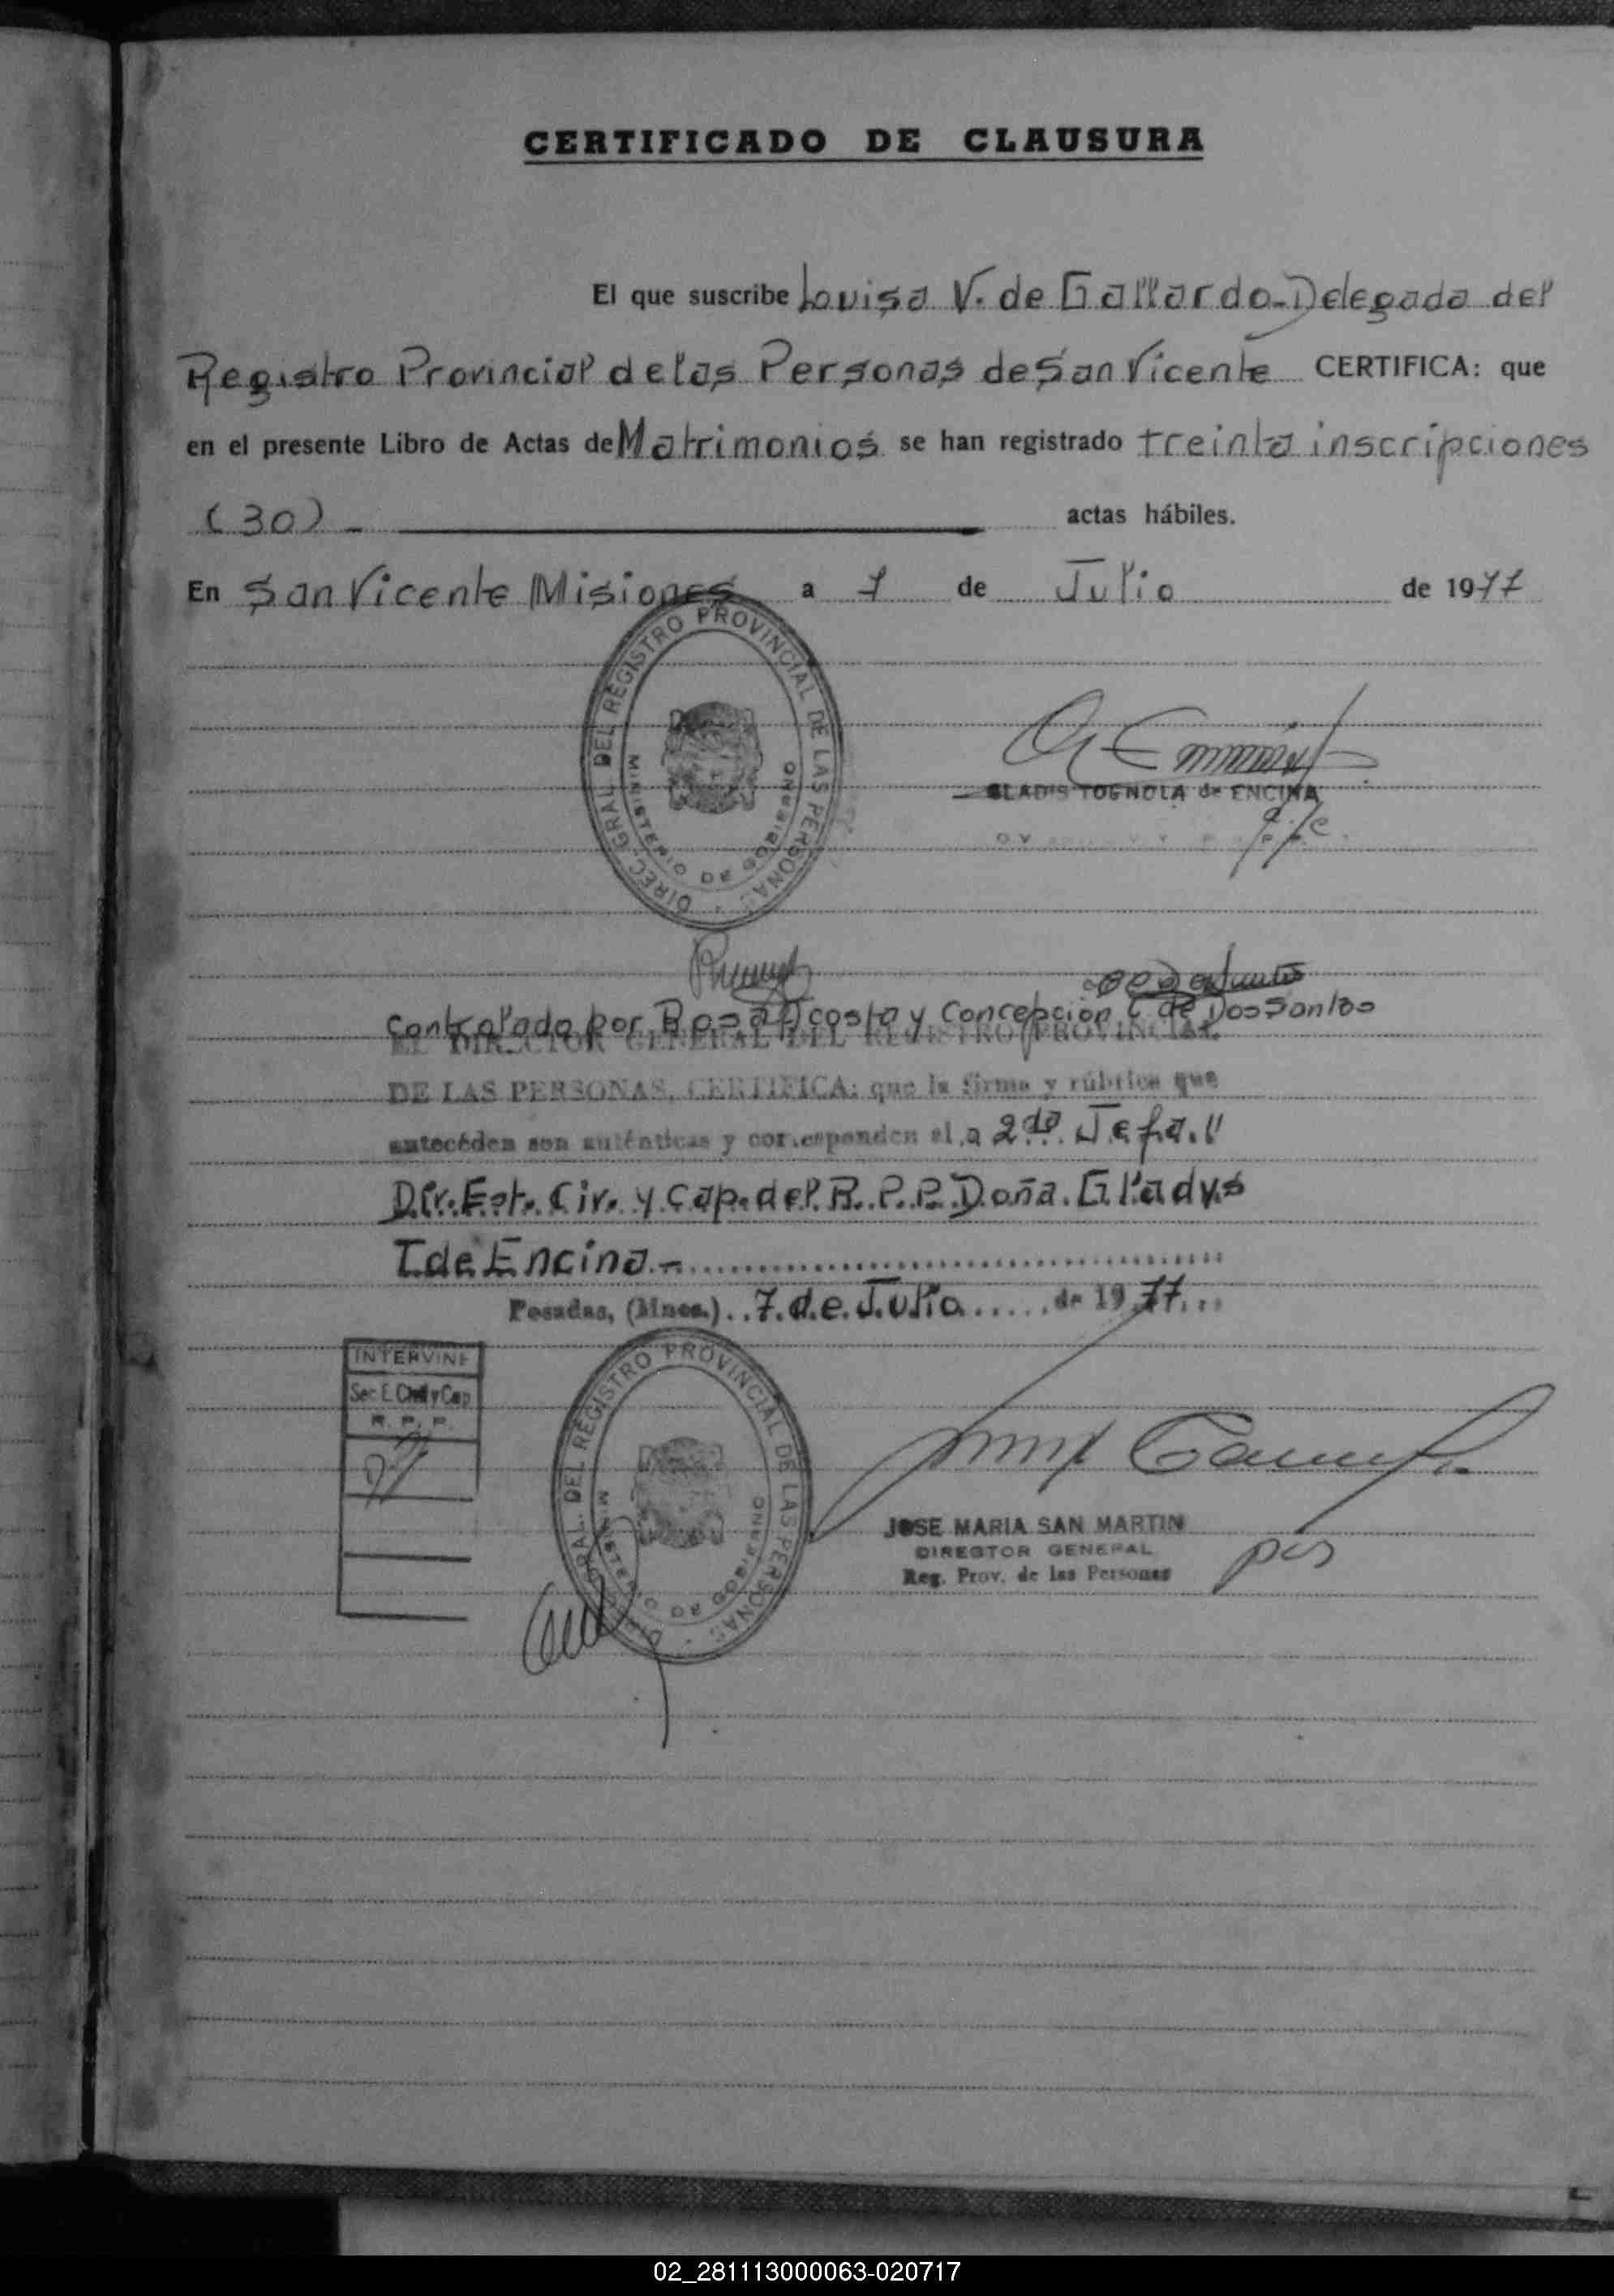 CERTIFICADO DE CLAUSURA
El que suscribe Louisa V. de Gallardo-Delegada del
Registro Provincial de las Personas de San Vicente CERTIFICA: que
en el presente Libro de Actas de Matrimonios se han registrado treinta inscripciones
(30) - actas hábiles.
En San Vicente Misiones a 7 de Julio de 1977
DIREC. GRAL. DEL REGISTRO PROVINCIAL DE LAS PERSONAS
MINISTERIO DE GOBIERNO
GLADIS TOGNOLA de ENCINA
Controlado por Rosa Acosta y Concepción C de Dos Santos
EL DIRECTOR GENERAL DEL REGISTRO PROVINCIAL
DE LAS PERSONAS, CERTIFICA: que la firma y rúbrica que
anteceden son auténticas y corresponden al a 2da. Jefa.
Dir. Est. Civ. y Cap. del R. P. P. Doña. Gladys
T. de Encina.-
Posadas, (Mnes.) 7 de Julio de 1977
INTERVINE
Sec. E. Civil y Cap
R. P. P.
DIREC. GRAL. DEL REGISTRO PROVINCIAL DE LAS PERSONAS
MINISTERIO DE GOBIERNO
JOSE MARIA SAN MARTIN
DIRECTOR GENERAL
Reg. Prov. de las Personas
02_281113000063-020717